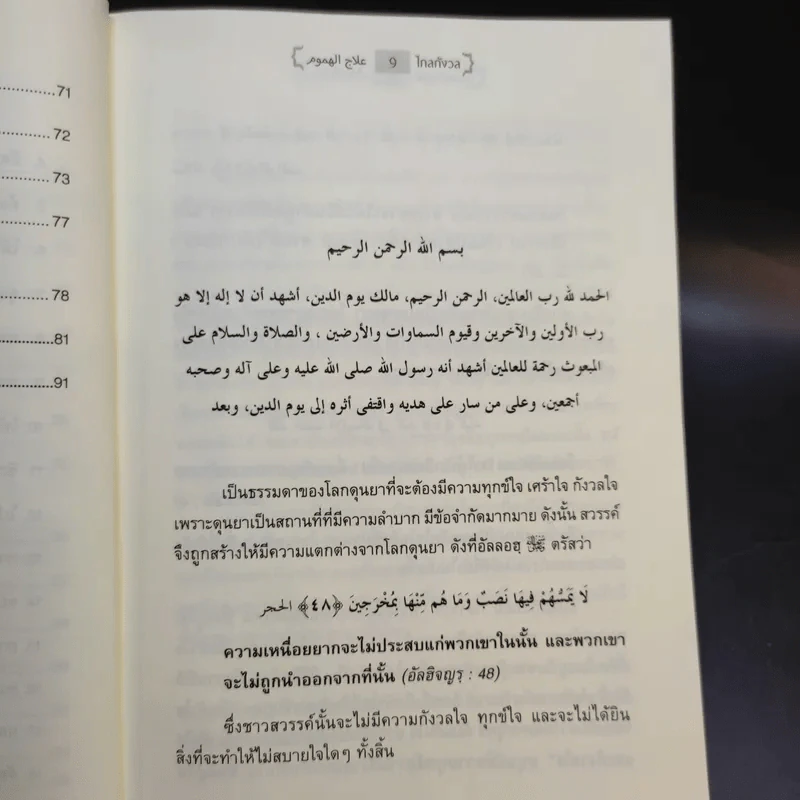 ............71
............72
............73
............77
............78
............81
............91
ไกลกังวล 9 علاج الهموم
بسم الله الرحمن الرحيم
الحمد لله رب العالمين، الرحمن الرحيم، مالك يوم الدين، أشهد أن لا إله إلا هو
رب الأولين والآخرين وقيوم السماوات والأرضين ، والصلاة والسلام على
المبعوث رحمة للعالمين أشهد أنه رسول الله صلى الله عليه وعلى آله وصحبه
أجمعين، وعلى من سار على هديه واقتفى أثره إلى يوم الدين، وبعد
เป็นธรรมดาของโลกดุนยาที่จะต้องมีความทุกข์ใจ เศร้าใจ กังวลใจ
เพราะดุนยาเป็นสถานที่ที่มีความลำบาก มีข้อจำกัดมากมาย ดังนั้น สวรรค์
จึงถูกสร้างให้มีความแตกต่างจากโลกดุนยา ดังที่อัลลอฮฺ ตรัสว่า
لَا يَمَسُّهُمْ فِيهَا نَصَبٌ وَمَا هُم مِّنْهَا بِمُخْرَجِينَ ﴿٤٨﴾ الحجر
ความเหนื่อยยากจะไม่ประสบแก่พวกเขาในนั้น และพวกเขา
จะไม่ถูกนำออกจากที่นั้น (อัลฮิจญรฺ : 48)
ซึ่งชาวสวรรค์นั้นจะไม่มีความกังวลใจ ทุกข์ใจ และจะไม่ได้ยิน
สิ่งที่จะทำให้ไม่สบายใจใดๆ ทั้งสิ้น